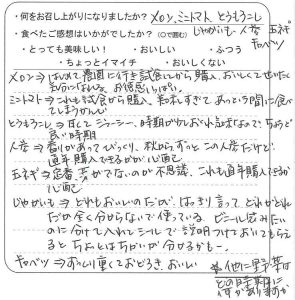 ・何をお召し上がりになりましたか？メロン、ミニトマト とうもろこし
じゃがいも・人参 玉ネギ
キャベツ
・食べたご感想はいかがでしたか？（○で囲む）
・とっても美味しい！ ・おいしい ・ふつう
・ちょっとイマイチ ・おいしくない
メロン⇒はじめて農園に行き試食してから購入。おいしくてぜいたく
気分になれる。お得感いっぱい。
ミニトマト⇒これも試食から購入。あっという間に食べ
てしまうかんじ
とうもろこし⇒甘くてジューシー、時期が
良い時期
人参⇒香りがあってびっくり。秋からずっとこの人参だけど
直年購入できるかが心配
玉ネギ⇒定番 芽がでないのが不思議。これも直年購入できるか
心配
じゃがいも⇒どれもおいしいのだが、はっきり言って どれがどれ
だか全く分からないで使っている。ビニール袋みたい
のに分けて入れてシールで説明つけておいてもらえ
ると ちょっとはちがいが分かるかも…
キャベツ⇒ずっしり重くておどろき。おいしい
＊他に野菜は
どの時期に
何がありますか